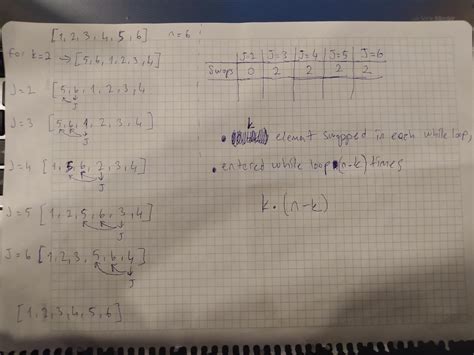 [1, 2, 3, 4, 5, 6] n=6
for k=2 → [5, 6, 1, 2, 3, 4]
J=2 [5, 6, 1, 2, 3, 4
J
J=3 [5, 6, 1, 2, 3, 4]
J
J=4 [1, 5, 6, 2, 3, 4]
J
J=5 [1, 2, 5, 6, 3, 4]
J
J=6 [1, 2, 3, 5, 6, 4]
J
[1, 2, 3, 4, 5, 6]
J=2 J=3 J=4 J=5 J=6
Swaps 0 2 2 2 2
k
• element swapped in each while loop,
• entered while loop (n-k) times
k · (n-k)